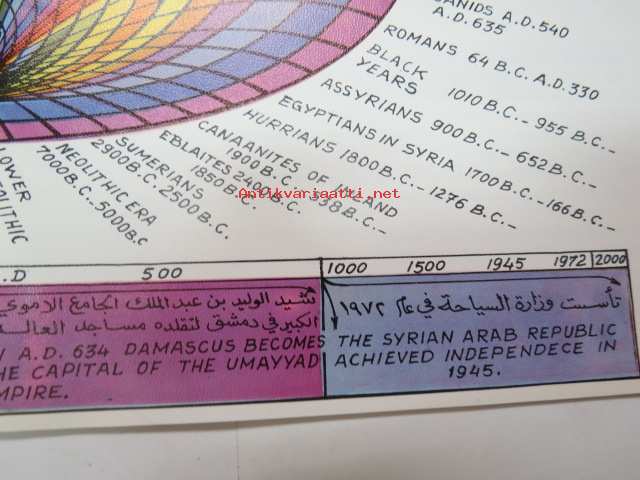 SANIDS A.D.540
A.D.635
ROMANS 64 B.C. A.D.330
BLACK
YEARS 1010 B.C._ 955 B.C._
ASSYRIANS 900 B.C._ 652 B.C._
EGYPTIANS IN SYRIA 1700 B.C._
HURRIANS 1800 B.C._ 1276 B.C._
CANAANITES OF INLAND
1900 B.C._
EBLAITES 2400 B.C.
1850 B.C.
SUMERIANS
2900 B.C. 2500 B.C.
NEOLITHIC ERA
7000 B.C._ 5000 B.C
LOWER
Antikvariaatti.net
.D 500 1000 1500 1945 1972 2000
تشييد الوليد بن عبد الملك الجامع الاموي
الكبير في دمشق لتقلده مساجد
تأسست وزارة السياحة في عام ١٩٧٢
A.D. 634 DAMASCUS BECOMES
HE CAPITAL OF THE UMAYYAD
MPIRE.
THE SYRIAN ARAB REPUBLIC
ACHIEVED INDEPENDECE IN
1945.